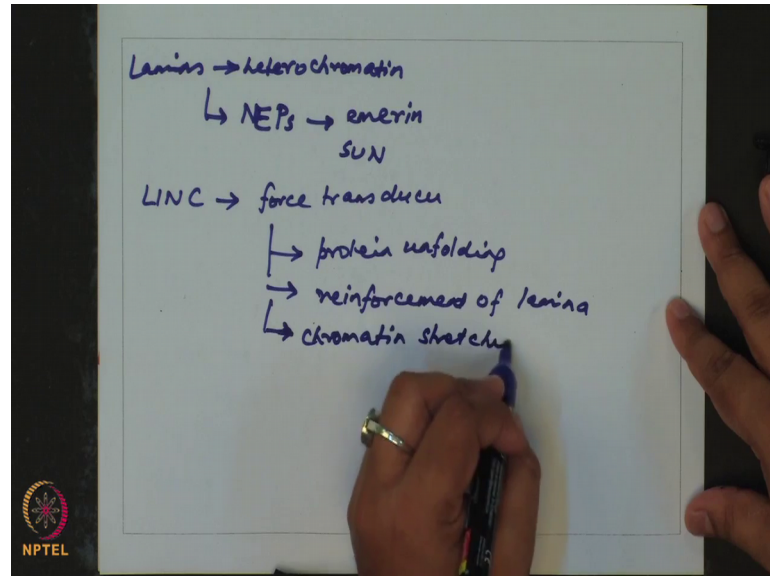 Lamins → heterochromatin
↳ NEPs → emerin
SUN
LINC → force transducer
→ protein unfolding
→ reinforcement of lamina
↳ chromatin stretch
NPTEL